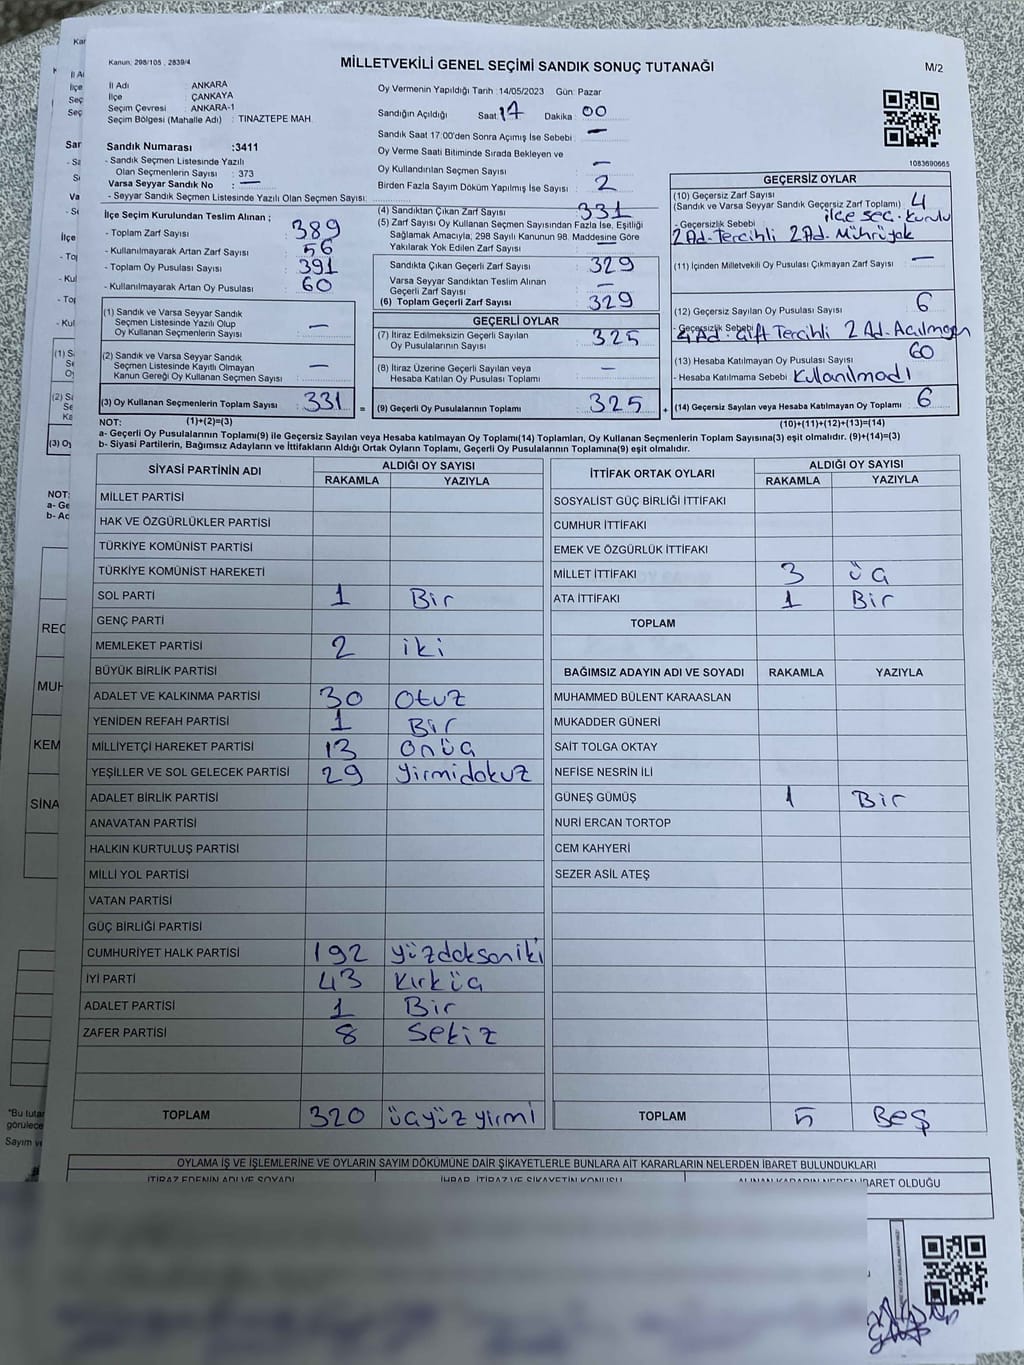 Kanun: 298/105 , 2839/4
MİLLETVEKİLİ GENEL SEÇİMİ SANDIK SONUÇ TUTANAĞI
M/2
İl Adı : ANKARA
İlçe : ÇANKAYA
Seçim Çevresi : ANKARA-1
Seçim Bölgesi (Mahalle Adı) : TINAZTEPE MAH.
Sandık Numarası :3411
- Sandık Seçmen Listesinde Yazılı
Olan Seçmenlerin Sayısı : 373
Varsa Seyyar Sandık No : —
- Seyyar Sandık Seçmen Listesinde Yazılı Olan Seçmen Sayısı:
Oy Vermenin Yapıldığı Tarih : 14/05/2023 Gün: Pazar
Sandığın Açıldığı Saat: 17 Dakika : 00
Sandık Saat 17:00'den Sonra Açımış İse Sebebi : —
Oy Verme Saati Bitiminde Sırada Bekleyen ve
Oy Kullandırılan Seçmen Sayısı : —
Birden Fazla Sayım Döküm Yapılmış İse Sayısı : 2
1083690665
İlçe Seçim Kurulundan Teslim Alınan ;
- Toplam Zarf Sayısı : 389
- Kullanılmayarak Artan Zarf Sayısı : 56
- Toplam Oy Pusulası Sayısı : 391
- Kullanılmayarak Artan Oy Pusulası : 60
(1) Sandık ve Varsa Seyyar Sandık
Seçmen Listesinde Yazılı Olup
Oy Kullanan Seçmenlerin Sayısı : —
(2) Sandık ve Varsa Seyyar Sandık
Seçmen Listesinde Kayıtlı Olmayan
Kanun Gereği Oy Kullanan Seçmen Sayısı : —
(3) Oy Kullanan Seçmenlerin Toplam Sayısı : 331 =
(4) Sandıktan Çıkan Zarf Sayısı : 331
(5) Zarf Sayısı Oy Kullanan Seçmen Sayısından Fazla İse, Eşitliği
Sağlamak Amacıyla; 298 Sayılı Kanunun 98. Maddesine Göre
Yakılarak Yok Edilen Zarf Sayısı :
Sandıkta Çıkan Geçerli Zarf Sayısı : 329
Varsa Seyyar Sandıktan Teslim Alınan
Geçerli Zarf Sayısı : —
(6) Toplam Geçerli Zarf Sayısı : 329
GEÇERLİ OYLAR
(7) İtiraz Edilmeksizin Geçerli Sayılan
Oy Pusulalarının Sayısı : 325
(8) İtiraz Üzerine Geçerli Sayılan veya
Hesaba Katılan Oy Pusulası Toplamı : —
(9) Geçerli Oy Pusulalarının Toplamı : 325 +
GEÇERSİZ OYLAR
(10) Geçersiz Zarf Sayısı
(Sandık ve Varsa Seyyar Sandık Geçersiz Zarf Toplamı) : 4
- Geçersizlik Sebebi : ilçe seç. kurulu
2 Ad. Tercihli 2 Ad. Mühürü yok
(11) İçinden Milletvekili Oy Pusulası Çıkmayan Zarf Sayısı : —
(12) Geçersiz Sayılan Oy Pusulası Sayısı : 6
- Geçersizlik Sebebi :
4 Ad. Çift Tercihli 2 Ad. Açılmayan
(13) Hesaba Katılmayan Oy Pusulası Sayısı : 60
- Hesaba Katılmama Sebebi : Kullanılmadı
(14) Geçersiz Sayılan veya Hesaba Katılmayan Oy Toplamı : 6
NOT: (1)+(2)=(3) (10)+(11)+(12)+(13)=(14)
a- Geçerli Oy Pusulalarının Toplamı(9) ile Geçersiz Sayılan veya Hesaba katılmayan Oy Toplamı(14) Toplamları, Oy Kullanan Seçmenlerin Toplam Sayısına(3) eşit olmalıdır. (9)+(14)=(3)
b- Siyasi Partilerin, Bağımsız Adayların ve İttifakların Aldığı Ortak Oyların Toplamı, Geçerli Oy Pusulalarının Toplamına(9) eşit olmalıdır.
SİYASİ PARTİNİN ADI ALDIĞI OY SAYISI
RAKAMLA YAZIYLA
MİLLET PARTİSİ
HAK VE ÖZGÜRLÜKLER PARTİSİ
TÜRKİYE KOMÜNİST PARTİSİ
TÜRKİYE KOMÜNİST HAREKETİ
SOL PARTİ 1 Bir
GENÇ PARTİ
MEMLEKET PARTİSİ 2 iki
BÜYÜK BİRLİK PARTİSİ
ADALET VE KALKINMA PARTİSİ 30 Otuz
YENİDEN REFAH PARTİSİ 1 Bir
MİLLİYETÇİ HAREKET PARTİSİ 13 onüç
YEŞİLLER VE SOL GELECEK PARTİSİ 29 Yirmidokuz
ADALET BİRLİK PARTİSİ
ANAVATAN PARTİSİ
HALKIN KURTULUŞ PARTİSİ
MİLLİ YOL PARTİSİ
VATAN PARTİSİ
GÜÇ BİRLİĞİ PARTİSİ
CUMHURİYET HALK PARTİSİ 192 yüzdoksaniki
İYİ PARTİ 43 Kırküç
ADALET PARTİSİ 1 Bir
ZAFER PARTİSİ 8 Sekiz
TOPLAM 320 üçyüz yirmi
İTTİFAK ORTAK OYLARI ALDIĞI OY SAYISI
RAKAMLA YAZIYLA
SOSYALİST GÜÇ BİRLİĞİ İTTİFAKI
CUMHUR İTTİFAKI
EMEK VE ÖZGÜRLÜK İTTİFAKI
MİLLET İTTİFAKI 3 üç
ATA İTTİFAKI 1 Bir
TOPLAM
BAĞIMSIZ ADAYIN ADI VE SOYADI RAKAMLA YAZIYLA
MUHAMMED BÜLENT KARAASLAN
MUKADDER GÜNERİ
SAİT TOLGA OKTAY
NEFİSE NESRİN İLİ
GÜNEŞ GÜMÜŞ 1 Bir
NURİ ERCAN TORTOP
CEM KAHYERİ
SEZER ASİL ATEŞ
TOPLAM 5 Beş
OYLAMA İŞ VE İŞLEMLERİNE VE OYLARIN SAYIM DÖKÜMÜNE DAİR ŞİKAYETLERLE BUNLARA AİT KARARLARIN NELERDEN İBARET BULUNDUKLARI
İTİRAZ EDENİN ADI VE SOYADI İHBAR, İTİRAZ VE ŞİKAYETİN KONUSU ALINAN KARARIN NEDEN İBARET OLDUĞU